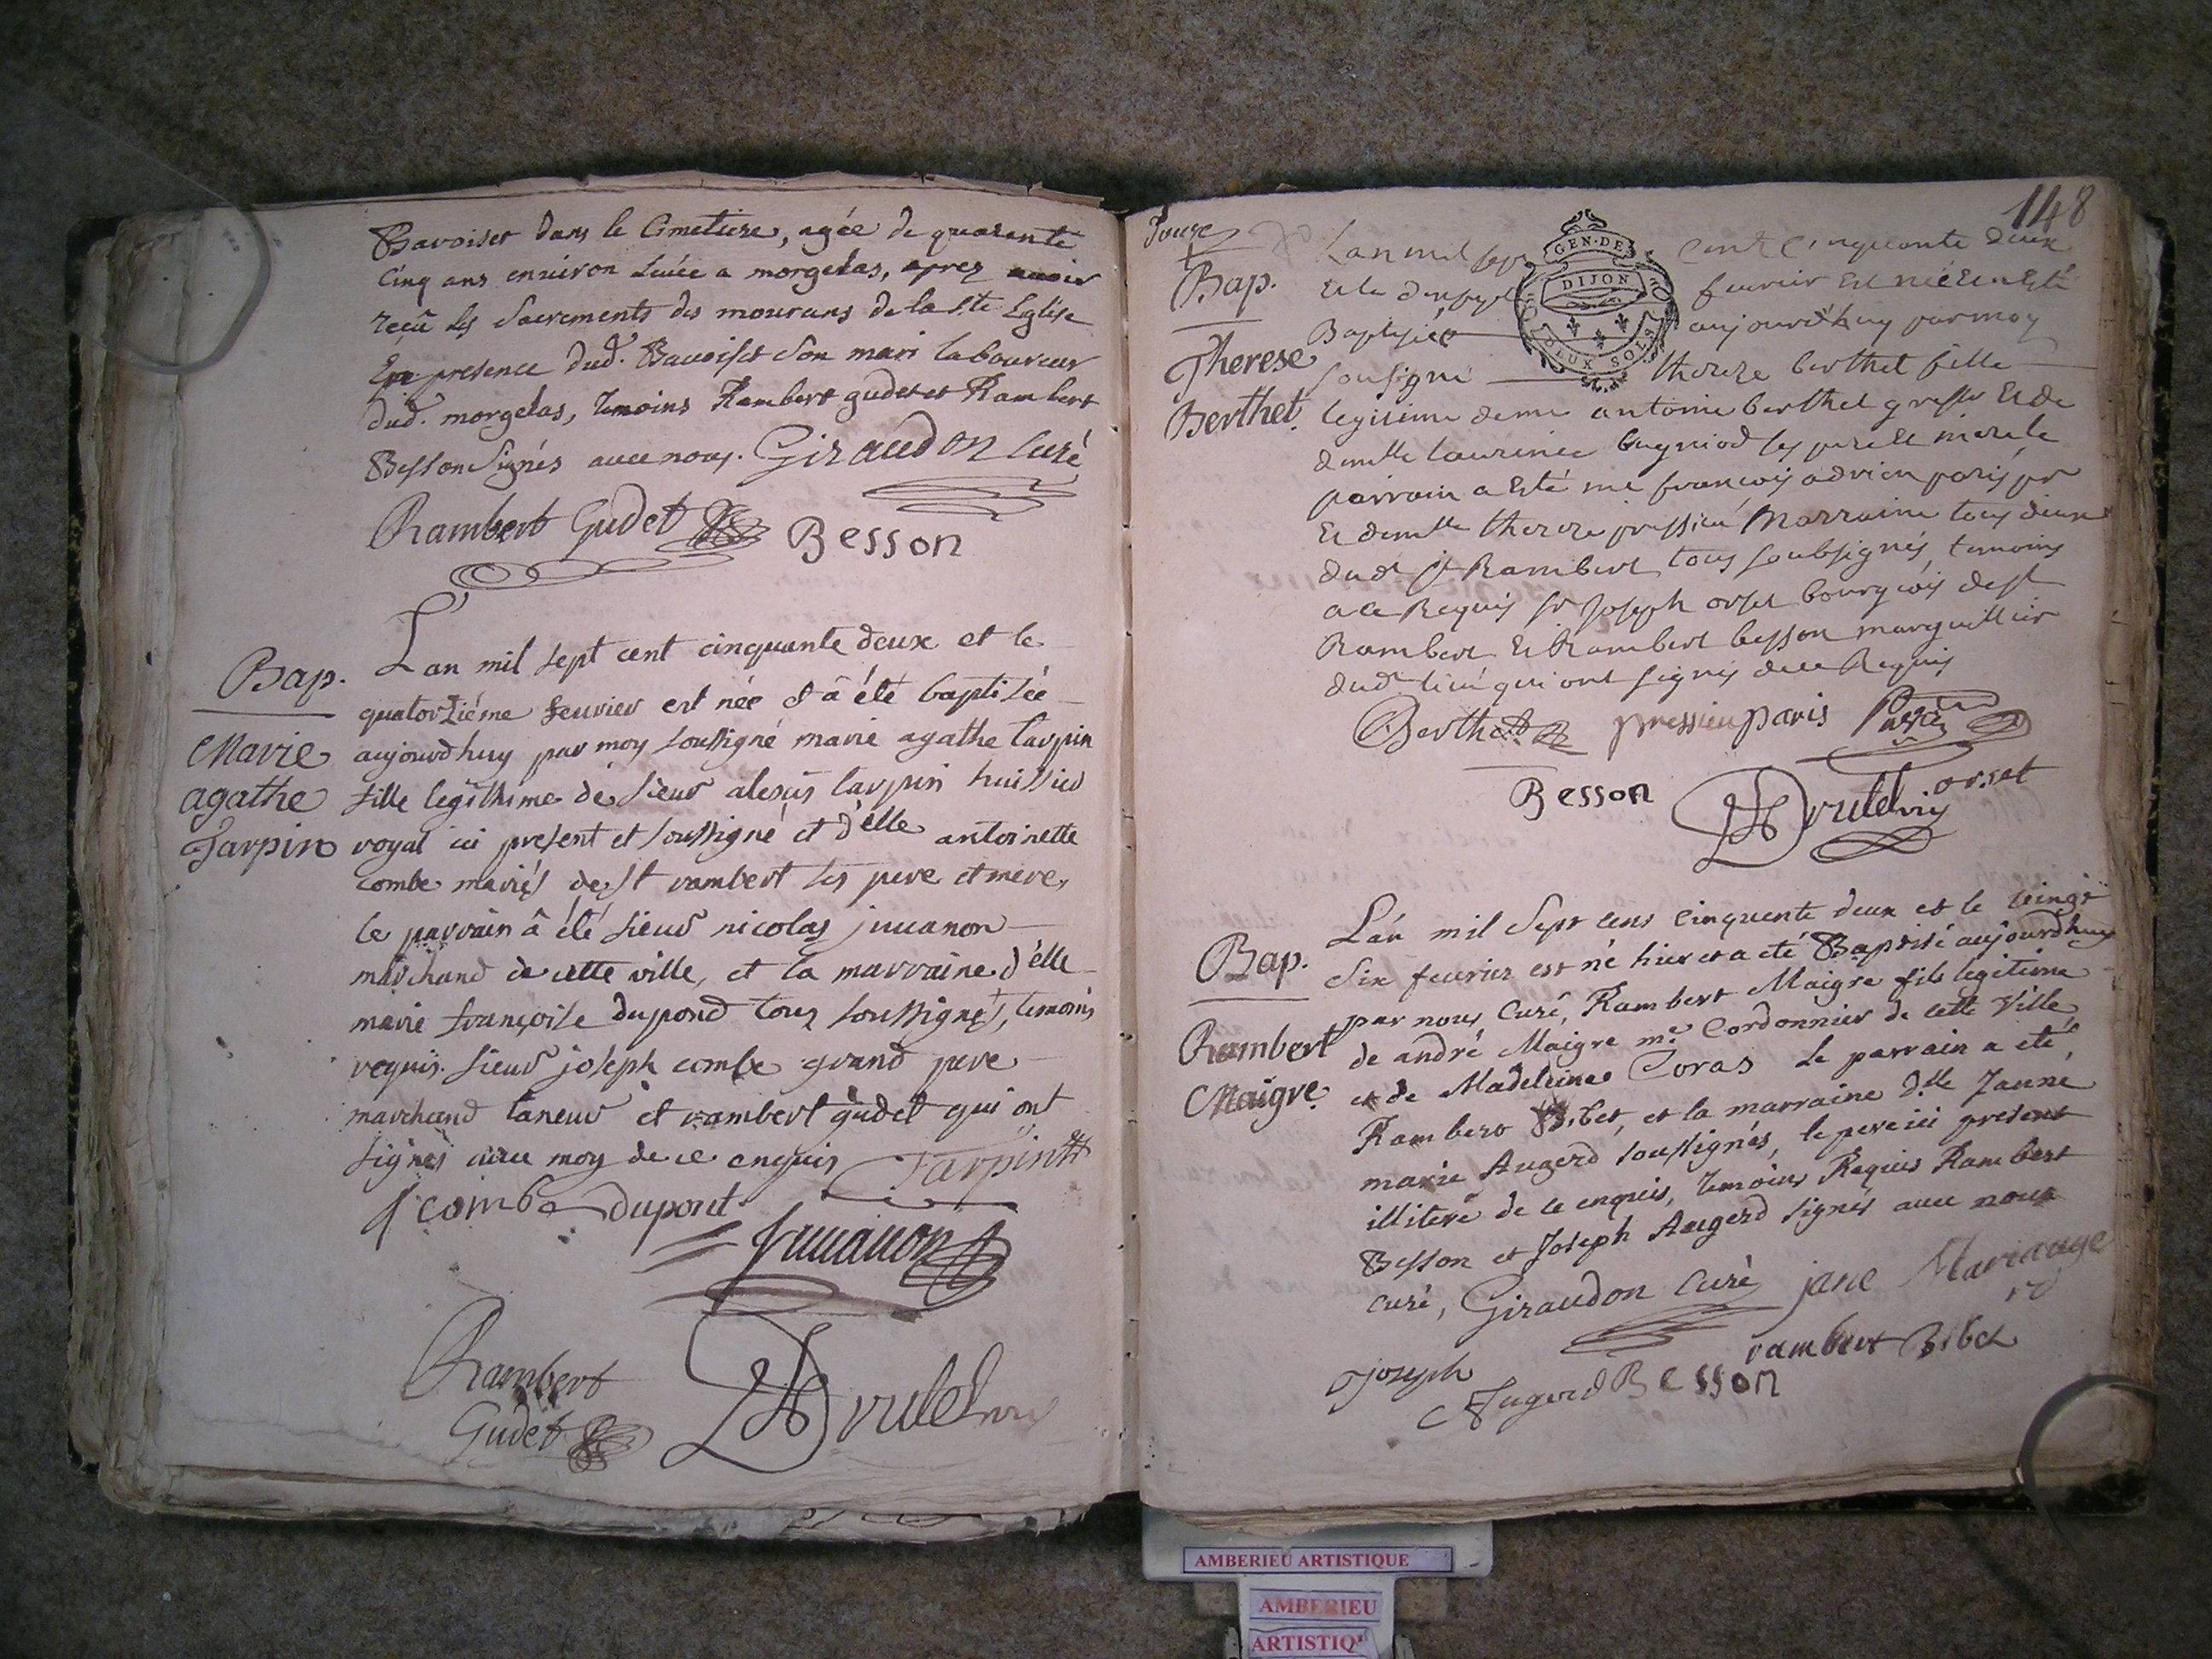 Bavoiset dans le Cimetiere, agée de quarente
Cinq ans environ decée a morgelas, aprez avoir
reçû les Sacrements des mourans de la Ste Eglise
En presence dud. Bavoiset Son mari laboureur
dud. morgelas, temoins Rambert gudet et Rambert
Besson Signés avec nous. Giraudon Curé
Rambert Gudet Besson
Bap.
Marie
agathe
Tarpin
L'an mil sept cent cinquante deux et le
quatorziéme feuvier est née et â été baptisée
aujourdhuy par moy soussigné marie agathe tarpin
fille legithime de sieur alexis tarpin huissier
royal ici present et soussigné et d'elle antoinette
combe mariés de st rambert ses pere et mere,
le parrain â été sieur nicolas juuanon
marchand de cette ville, et la marraine d'elle
marie françoise dupond tous soussignés, temoins
requis sieur joseph combe grand pere
marchand taneur et rambert gudet qui ont
signés avec moy de ce enquis Tarpin
J combe dupont
Juuanon
Rambert
Gudet
148
GEN. DE
DIJON
DEUX SOLS
Bap.
Therese
Berthet.
L'an mil sept cent cinquante deux
et le dixsept feuvrier est née et a esté
Baptisée aujourd'huy par moy
sousigné thereze berthet fille
legitime de me antoine berthet greffr et de
demlle laurence bugniod ses pere et mere le
parrain a esté me françois adrien paris pr
et demlle thereze pressieu Marraine tous deux
dudt st Rambert tous soubsignés temoins
a ce Requis sr Joseph orset bourgeois de st
Rambert et Rambert besson marguillier
dudt lieu qui ont signés de ce Requis
Berthet pressieu paris
Besson orset
Bap.
Rambert
Maigre
L'an mil Sept cens Cinquente deux et le vingt
Six feurier est né hier et a été Baptisé aujourdhuy
par nous Curé, Rambert Maigre fils legitime
de andré Maigre me. Cordonnier de cette Ville
et de Madeleine Coras le parrain a eté
Rambert Bibet, et la marraine d.lle Janne
marie Augerd soussignés, le pere ici present
illiteré de ce enquis, temoins Requis Rambert
Besson et Joseph Augerd signés avec nous
curé, Giraudon Curé jane Marie auge
rd
rambert Bibet
Joseph
Augerd Besson
AMBERIEU ARTISTIQUE
AMBERIEU
ARTISTIQ